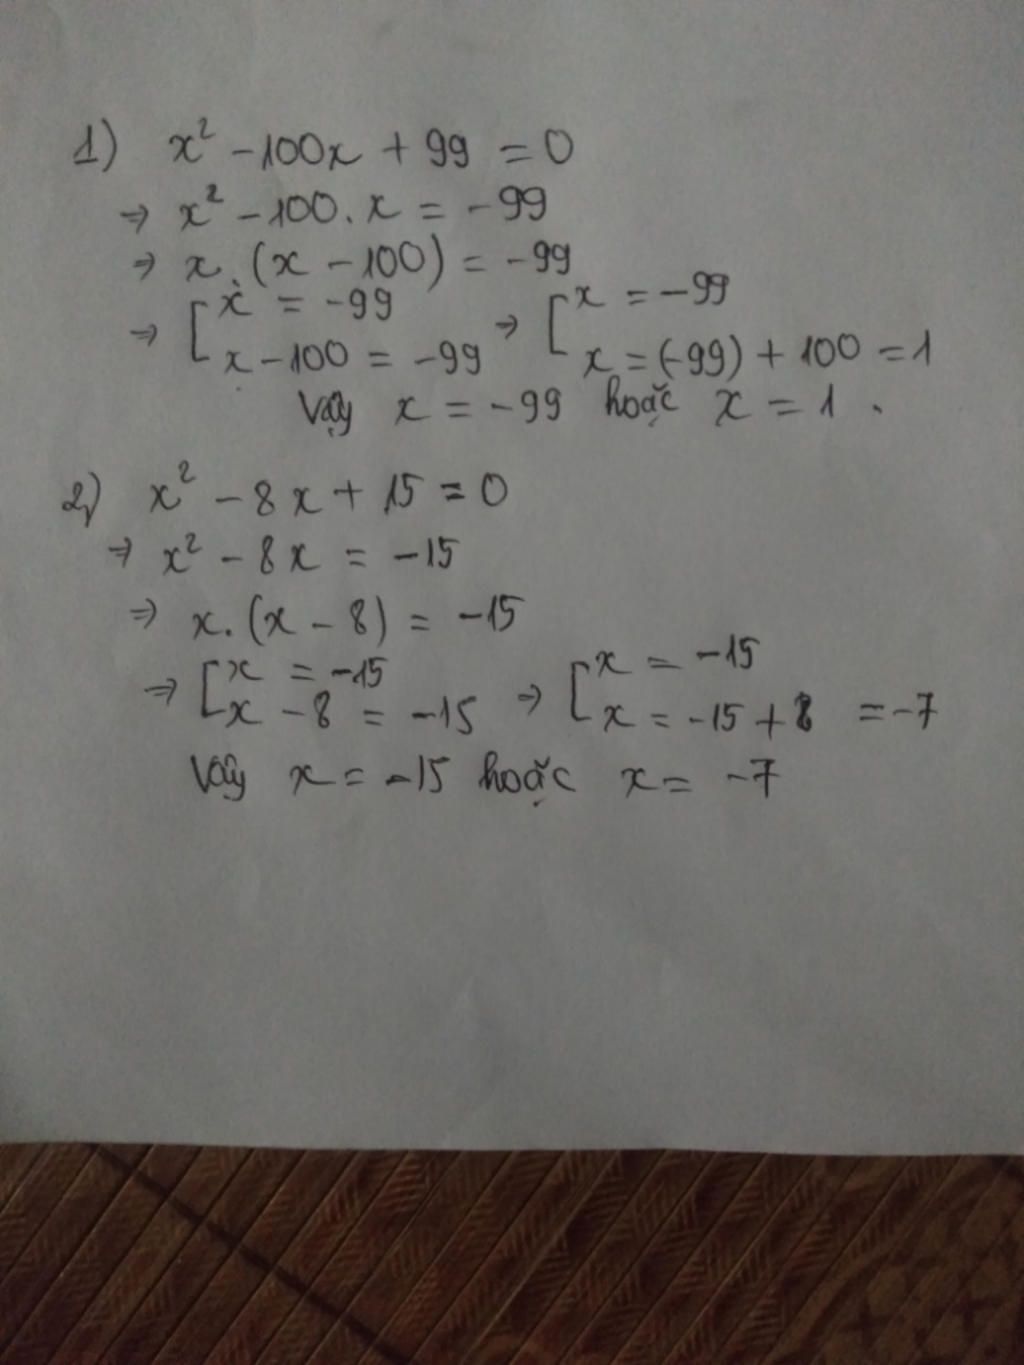 1) x² - 100x + 99 = 0
⇒ x² - 100. x = -99
⇒ x. (x - 100) = -99
⇒ [ x = -99 ⇒ [ x = -99
x - 100 = -99 x = (-99) + 100 = 1
Vậy x = -99 hoặc x = 1 .
2) x² - 8x + 15 = 0
⇒ x² - 8x = -15
⇒ x. (x - 8) = -15
⇒ [ x = -15 ⇒ [ x = -15
x - 8 = -15 x = -15 + 8 = -7
Vậy x = -15 hoặc x = -7